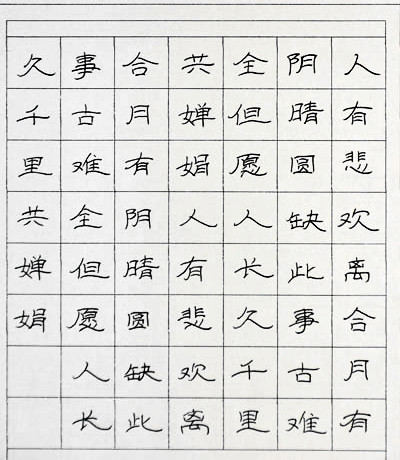 人有悲欢离合月有
阴晴圆缺此事古难
全但愿人长久千里
共婵娟人有悲欢离
合月有阴晴圆缺此
事古难全但愿人长
久千里共婵娟